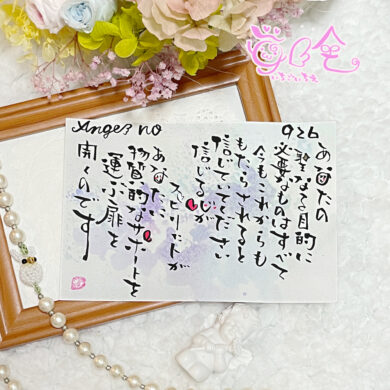 Angel no
926
あなたの
聖なる目的に
必要なものはすべて
今もこれからも
もたらされると
信じていてください
信じる心が
スピリットが
あなたに
物質的なサポートを
運ぶ扉を
開くのです